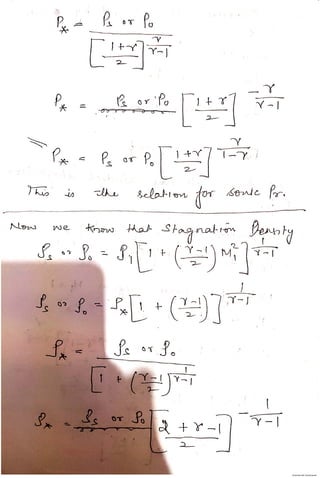 P* = Ps or Po / [ (1+γ)/2 ]^(γ/(γ-1))
P* = Ps or Po [ (1+γ)/2 ]^(-γ/(γ-1))
P* = Ps or Po [ (1+γ)/2 ]^(γ/(1-γ))
This is the relation for sonic Pr.
Now we know that Stagnation Density
ρs or ρo = ρ1 [ 1 + ((γ-1)/2) M1² ]^(1/(γ-1))
ρs or ρo = ρ* [ 1 + ((γ-1)/2) ]^(1/(γ-1))
ρ* = ρs or ρo / [ 1 + ((γ-1)/2) ]^(1/(γ-1))
ρ* = ρs or ρo [ (2+γ-1)/2 ]^(-1/(γ-1))